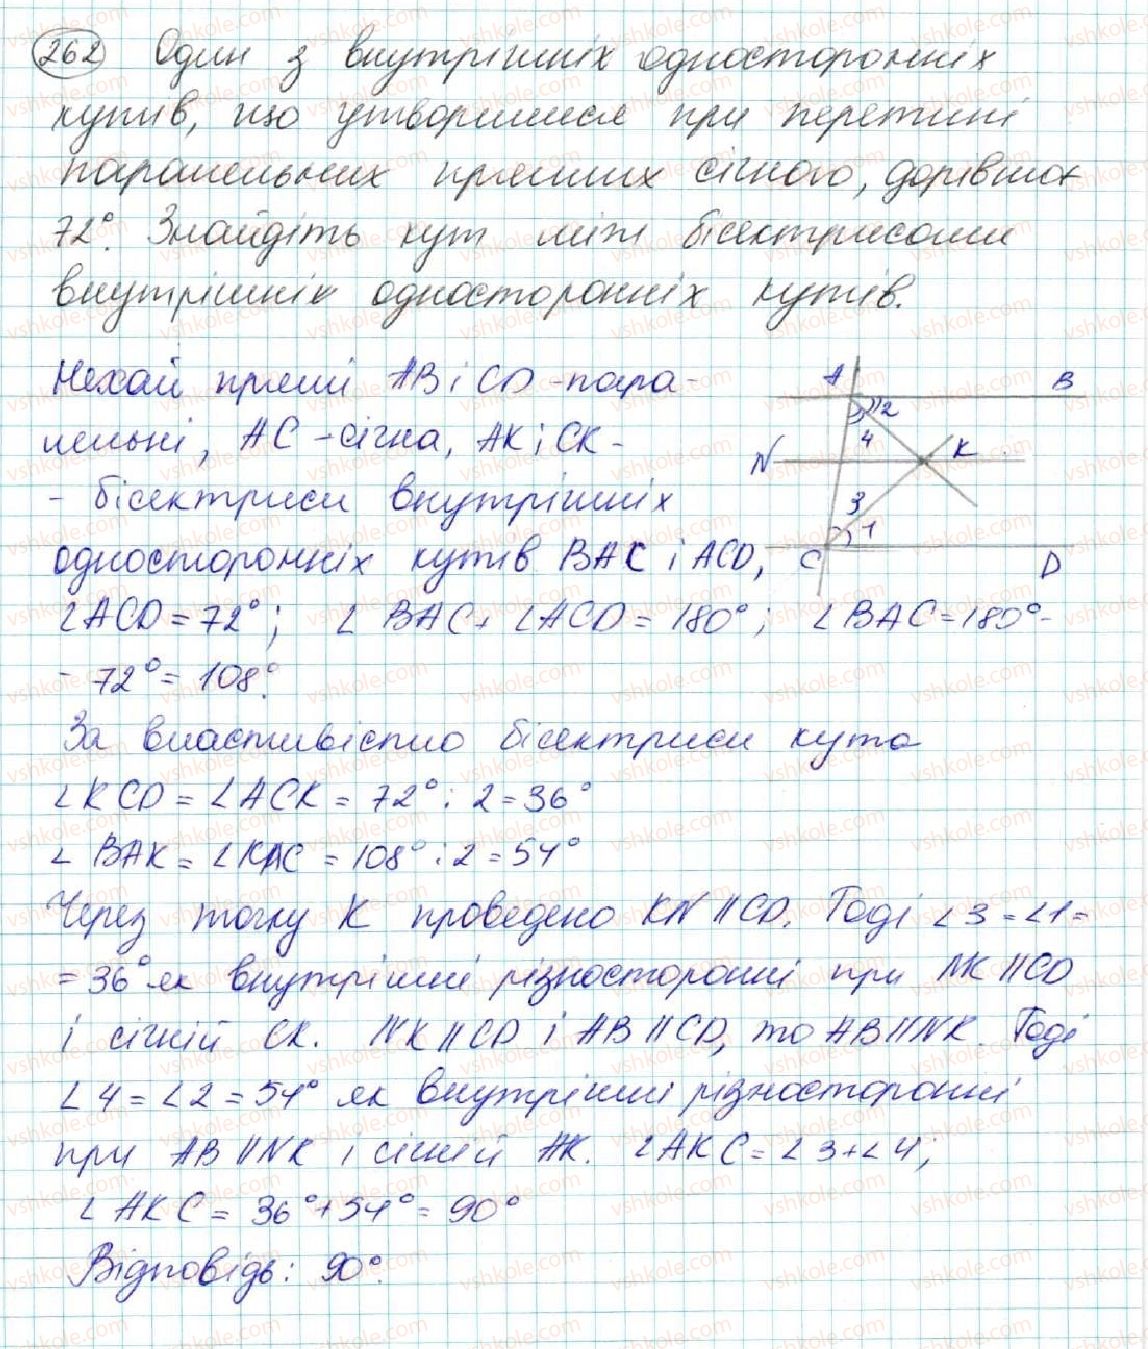 262 Один з внутрішніх односторонніх
кутів, що утворилися при перетині
паралельних прямих січною, дорівнює
72°. Знайдіть кут між бісектрисами
внутрішніх односторонніх кутів.
Нехай прямі AB і CD - пара-
лельні, AC - січна, AK і CK -
- бісектриси внутрішніх
односторонніх кутів BAC і ACD,
∠ACD = 72°; ∠BAC + ∠ACD = 180°; ∠BAC = 180° -
- 72° = 108°.
За властивістю бісектриси кута
∠KCD = ∠ACK = 72° : 2 = 36°
∠BAK = ∠KAC = 108° : 2 = 54°
Через точку K проведено KN || CD. Тоді ∠3 = ∠1 =
= 36° як внутрішні різносторонні при NK || CD
і січній CK. NK || CD і AB || CD, то AB || NK. Тоді
∠4 = ∠2 = 54° як внутрішні різносторонні
при AB || NK і січній AK. ∠AKC = ∠3 + ∠4;
∠AKC = 36° + 54° = 90°
Відповідь: 90°.
A B
2
4
N K
3
1
C D
vshkole.com